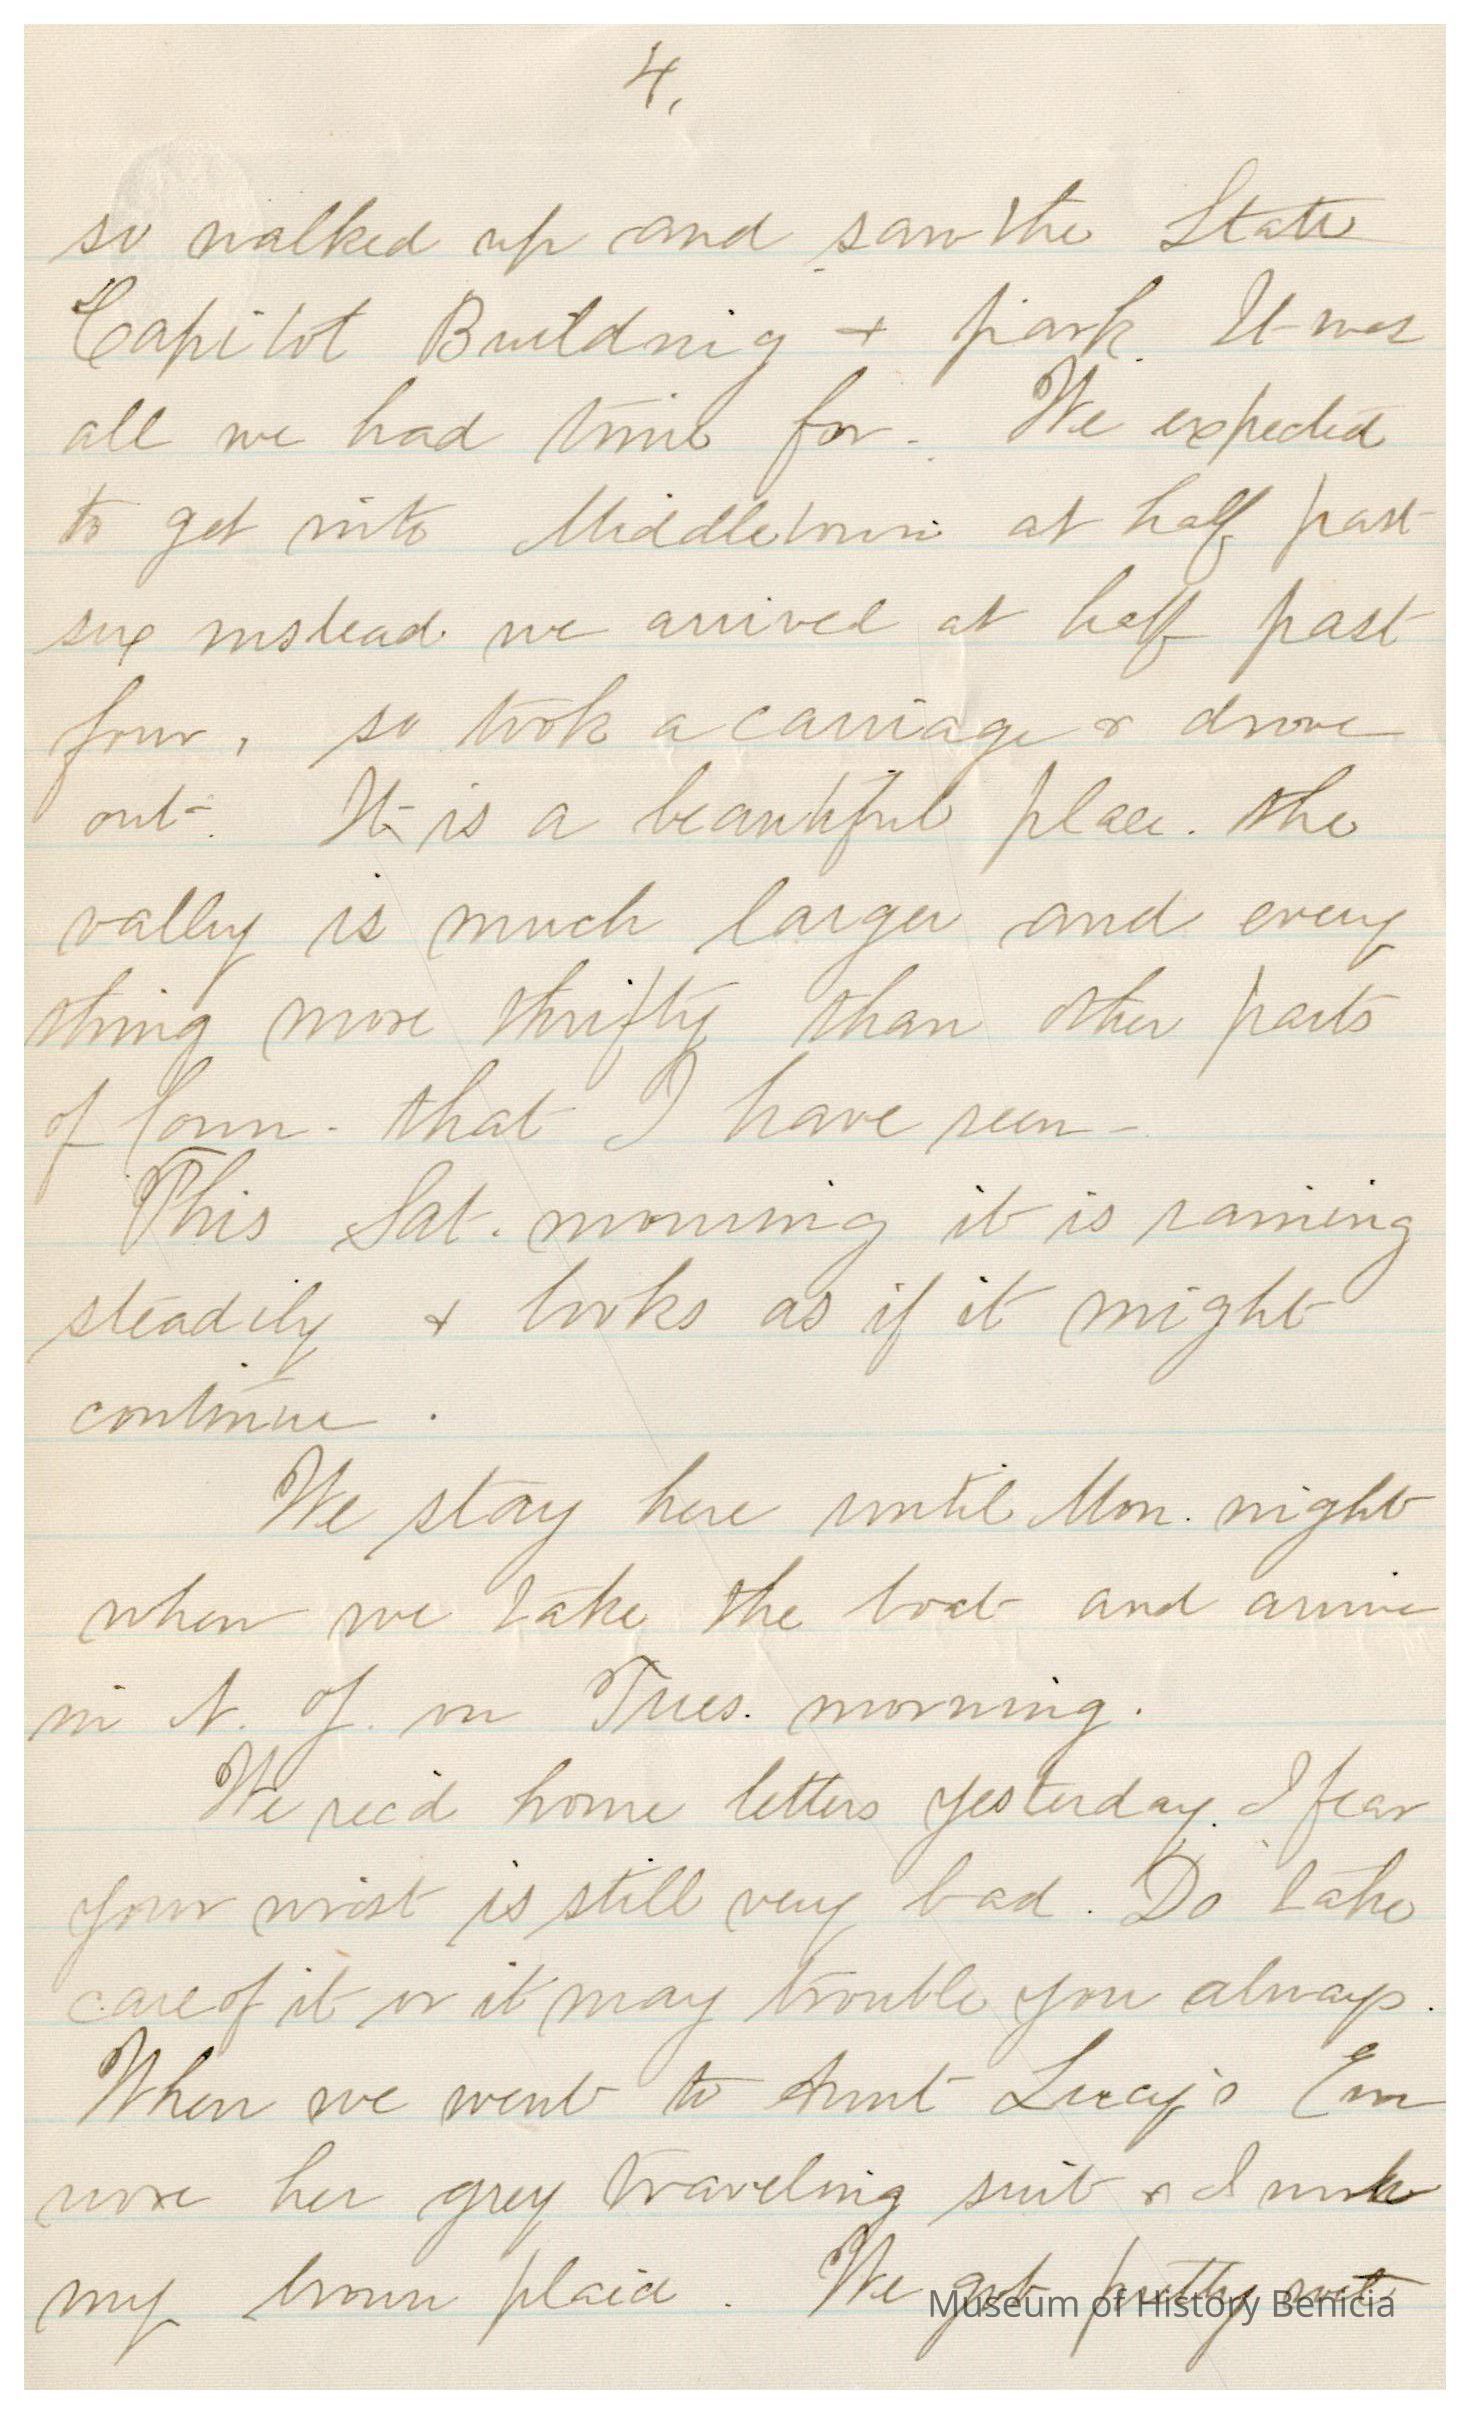 4,
so walked up and saw the State
Capitol Building + park. It was
all we had time for. We expected
to get into Middletown at half past
six instead we arrived at half past
four, so took a carriage & drove
out. It is a beautiful place. the
valley is much larger and every
thing more thrifty than other parts
of Conn. that I have seen -
This Sat. morning it is raining
steadily + looks as if it might
continue.
We stay here until Mon. night
when we take the boat and arrive
in N. Y. on Tues. morning.
We rec'd home letters yesterday. I fear
your wrist is still very bad. Do take
care of it or it may trouble you always.
When we went to Aunt Lucy's Em
wore her grey traveling suit & I
my brown plaid. We got pretty wet
Museum of History Benicia